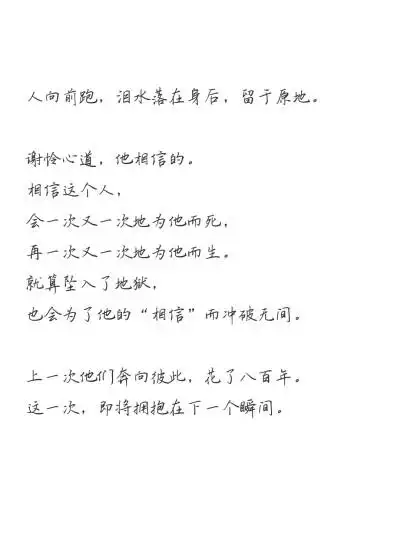 人向前跑，泪水落在身后，留于原地。
谢怜心道，他相信的。
相信这个人，
会一次又一次地为他而死，
再一次又一次地为他而生。
就算坠入了地狱，
也会为了他的“相信”而冲破无间。
上一次他们奔向彼此，花了八百年。
这一次，即将拥抱在下一个瞬间。